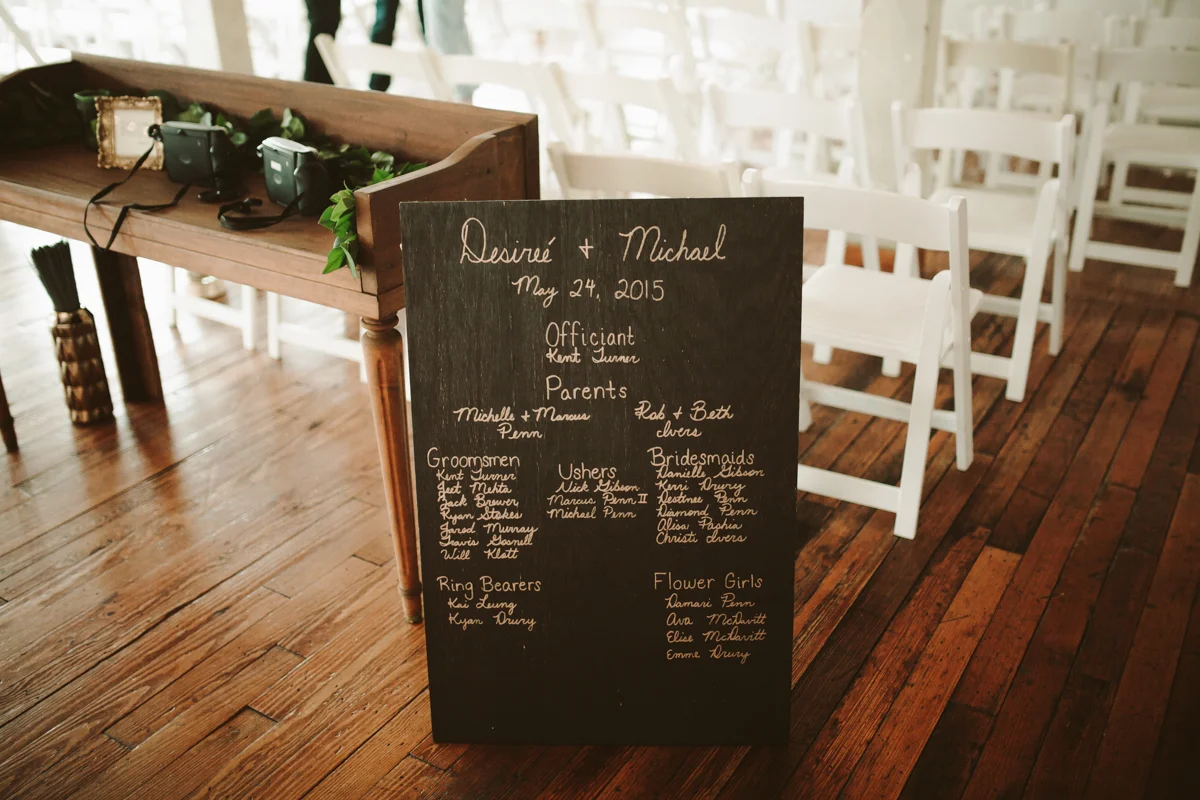 Desireé + Michael
May 24, 2015
Officiant
Kent Turner
Parents
Michelle + Marcus
Penn
Rob + Beth
Ivers
Groomsmen
Kent Turner
Jeet Mehta
Zack Brewer
Ryan Stokes
Jared Murray
Travis Gosnell
Will Klatt
Ushers
Nick Gibson
Marcus Penn II
Michael Penn
Bridesmaids
Danielle Gibson
Kerri Drury
Destinee Penn
Diamond Penn
Alisa Paphia
Christi Ivers
Ring Bearers
Kai Leung
Ryan Drury
Flower Girls
Damari Penn
Ava McDavitt
Elise McDavitt
Emme Drury